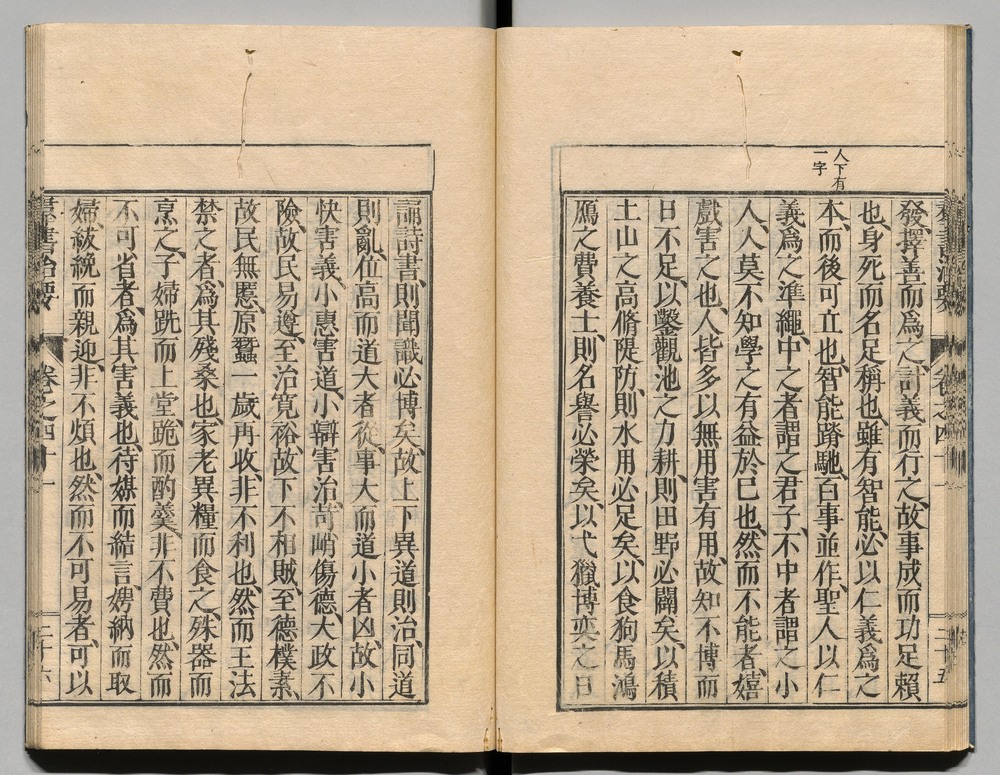 人下有
一字
羣書治要 卷之四十一 三十五
發、擇善而爲之、計義而行之、故事成而功足賴
也、身死而名足稱也、雖有智能、必以仁義爲之
本、而後可立也、智能蹐馳、百事並作、聖人以仁
義爲之準繩、中之者謂之君子、不中者謂之小
人、人莫不知學之有益於己也、然而不能者、嬉
戲害之也、人皆多以無用害有用、故知不博而
日不足、以鑿觀池之力耕、則田野必闢矣、以積
土山之高脩隄防、則水用必足矣、以食狗馬鴻
鴈之費養士、則名譽必榮矣、以弋獵博奕之日
誦詩書、則聞識必博矣、故上下異道則治、同道
則亂、位高而道大者從、事大而道小者凶、故小
快害義、小惠害道、小辯害治、苛峭傷德、大政不
險、故民易遵、至治寬裕、故下不相賊、至德樸素、
故民無慝、原蠶一歲再收、非不利也、然而王法
禁之者、爲其殘桑也、家老異糧而食之、殊器而
烹之、子婦跣而上堂、跪而酌羹、非不費也、然而
不可省者、爲其害義也、待媒而結言、娉納而取
婦、紱絻而親迎、非不煩也、然而不可易者、可以
羣書治要 卷之四十一 三十六